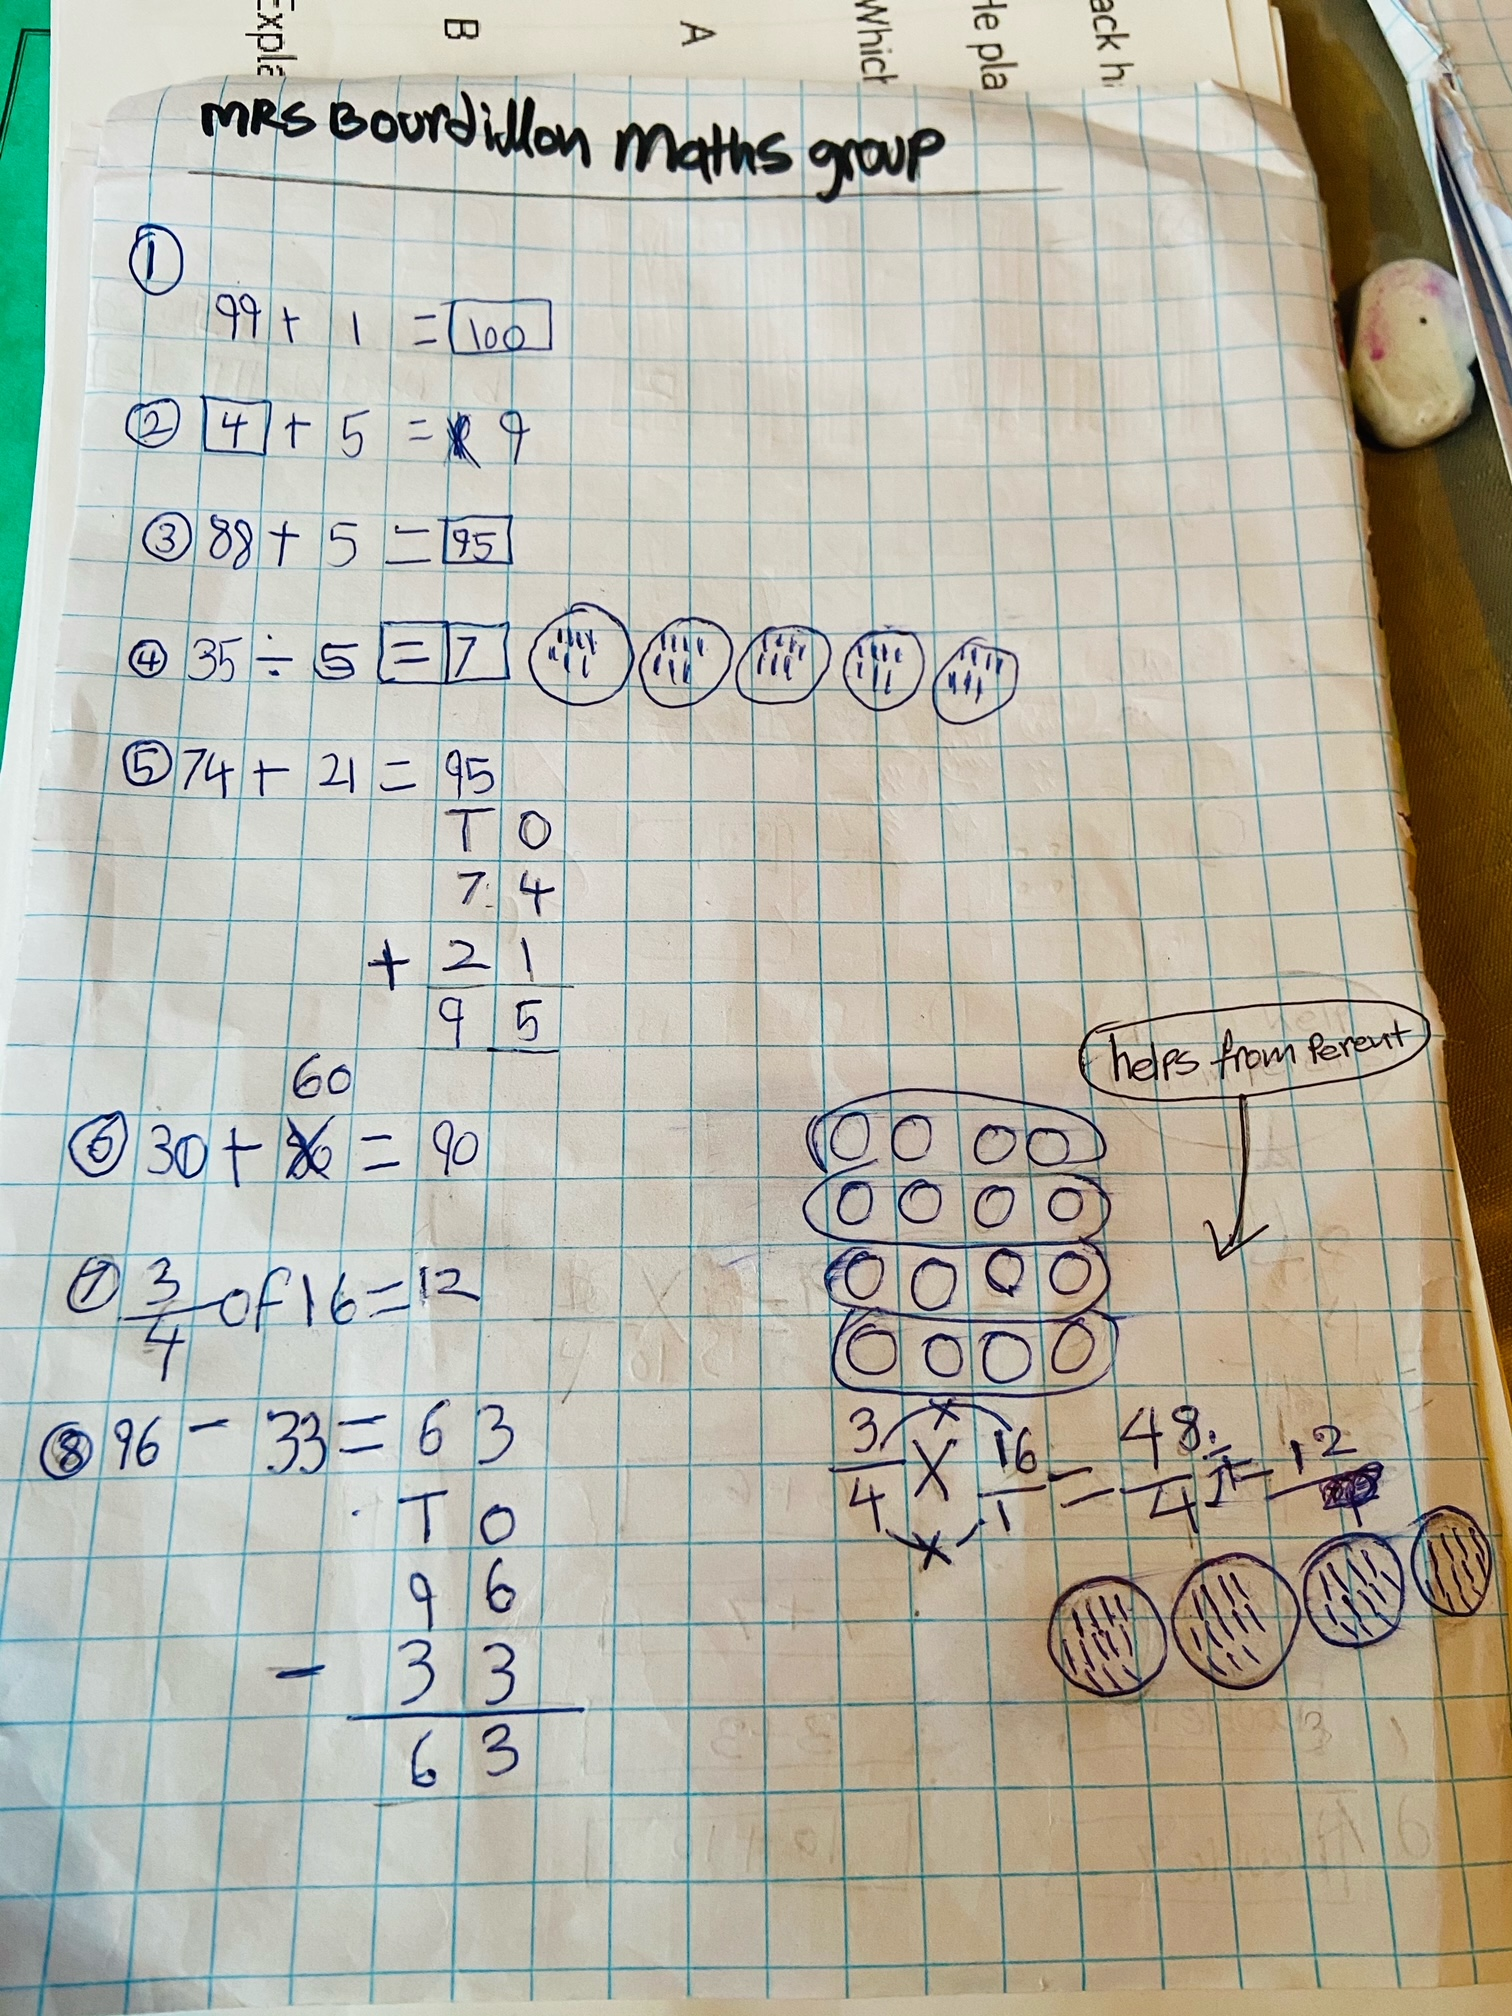 Expla
B
A
Which
He pla
ack hi
MRS Bourdillon Maths group
1
99 + 1 = 100
2 4 + 5 = 9
3 88 + 5 = 95
4 35 ÷ 5 = 7
5 74 + 21 = 95
T O
7 4
+ 2 1
9 5
60
6 30 + = 90
7 3/4 of 16 = 12
helps from Perent
3/4 × 16/1 = 48/4 ÷ = 12
8 96 - 33 = 63
T O
9 6
- 3 3
6 3